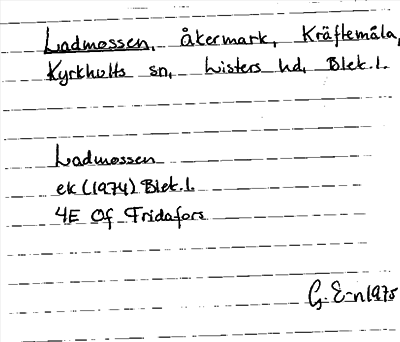 Ladmossen, åkermark, Kräftemåla,
Kyrkhults sn, Listers hd, Blek. l.
Ladmossen
ek (1974) Blek. l.
4E 0f Fridafors
G. E-n 1975